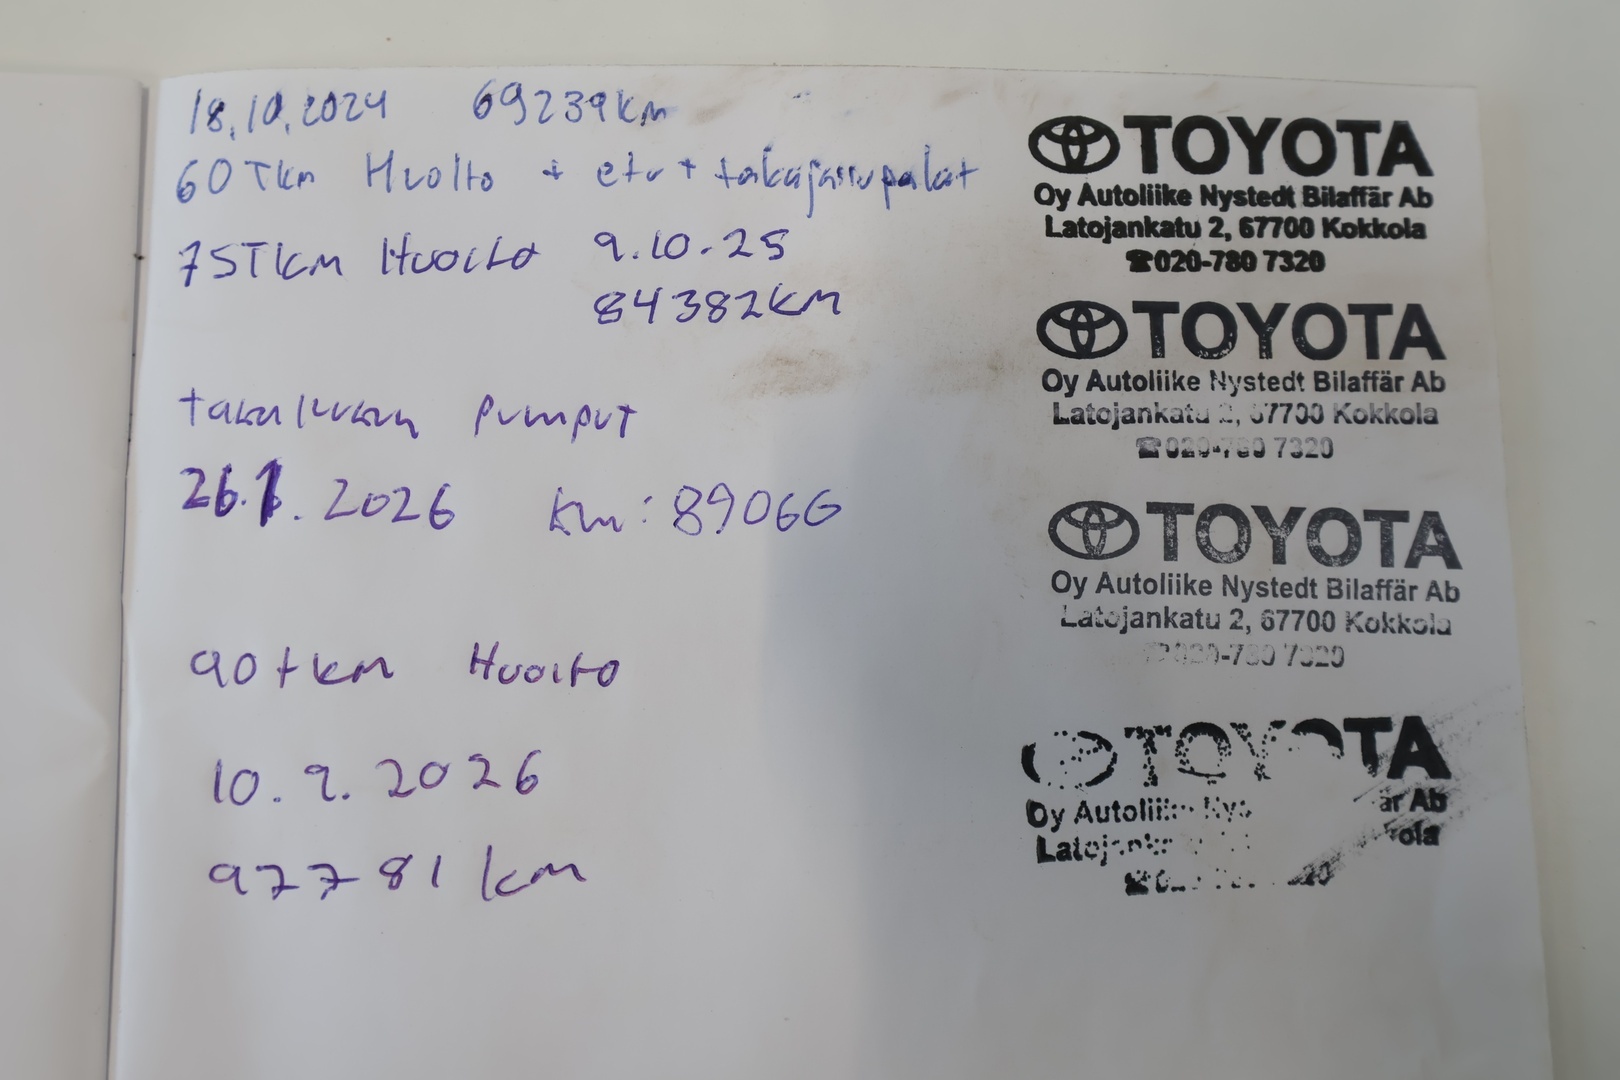 18.10.2024 69239km
60Tkm Huolto + etu + takajarrupalat
75Tkm Huolto 9.10-25
84382km
takaluukun pumput
26.1.2026 km: 89066
90tkm Huolto
10.9.2026
97781km
TOYOTA
Oy Autoliike Nystedt Bilaffär Ab
Latojankatu 2, 67700 Kokkola
☎020-780 7320
TOYOTA
Oy Autoliike Nystedt Bilaffär Ab
Latojankatu 2, 67700 Kokkola
☎020-780 7320
TOYOTA
Oy Autoliike Nystedt Bilaffär Ab
Latojankatu 2, 67700 Kokkola
☎020-780 7320
TOYOTA
Oy Autoliike är Ab